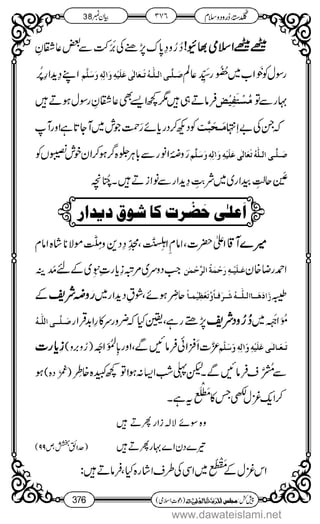 گلدستۂ درود وسلام ٣٧٦ بیان نمبر 38
میٹھے میٹھے اسلامی بھائیو! دُرُود پاک پڑھنے کی بَرَکت سے بعض عاشقانِ
رسول کو خوابوں میں حُضُور سیّدِ عالم صَلَّی اللہُ تَعَالٰی عَلَیْہِ وَاٰلِہٖ وَسَلَّم اپنے دیدارِ پُر
بہار سے تو مُسْتَفِیْض فرماتے ہی ہیں مگر کچھ ایسے بھی عاشقانِ رسول ہوتے ہیں
کہ جن کی بے انتہا مَحَبَّت دیکھ کر دریائے رحمت جوش میں آجاتا ہے اور آپ
صَلَّی اللہُ تَعَالٰی عَلَیْہِ وَاٰلِہٖ وَسَلَّم روضۂ انور سے باہر جلوہ گر ہوکر ان خوش نصیبوں کو
عَین حالتِ بیداری میں شربتِ دیدار سے نوازتے ہیں۔ چُنانچِہ
اَعلٰی حَضْرت کا شوقِ دیدار
میرے آقا اعلیٰ حضرت، امامِ اہلسنّت، مُجدِّدِ دین و مِلّت مولانا شاہ امام
احمد رضا خان عَلَیْہِ رَحْمَۃُ الرَّحْمٰن جب دوسری مرتبہ زیارتِ نبوی کے لئے مَدینہ
طیبہ زَادَھَا اللہُ شَرَفًا وَّتَعْظِیْمًا حاضِر ہوئے، شوقِ دیدار میں روضہ شریف کے
مُوَاجَہَہ میں دُرُود شریف پڑھتے رہے، یقین کیا کہ ضرور سرکار ابد قرار صَلَّی اللہُ
تَعَالٰی عَلَیْہِ وَاٰلِہٖ وَسَلَّم عزّت افزائی فرمائیں گے، اور بِالْمُوَاجَہَہ (روبرو) زیارت
سے مُشَرَّف فرمائیں گے۔ لیکن پہلی شب ایسا نہ ہوا تو کچھ کبیدہ خاطر (غمزدہ) ہو
کر ایک غزل لکھی جس کا مَطْلَع یہ ہے۔
وہ سوئے لالہ زار پھرتے ہیں
تیرے دن اے بہار پھرتے ہیں (حدائق بخشش، ص ۹۹)
اس غزل کے مَقْطَع میں اسی کی طرف اشارہ کیا، فرماتے ہیں:
376 (دعوتِ اسلامی)
www.dawateislami.net